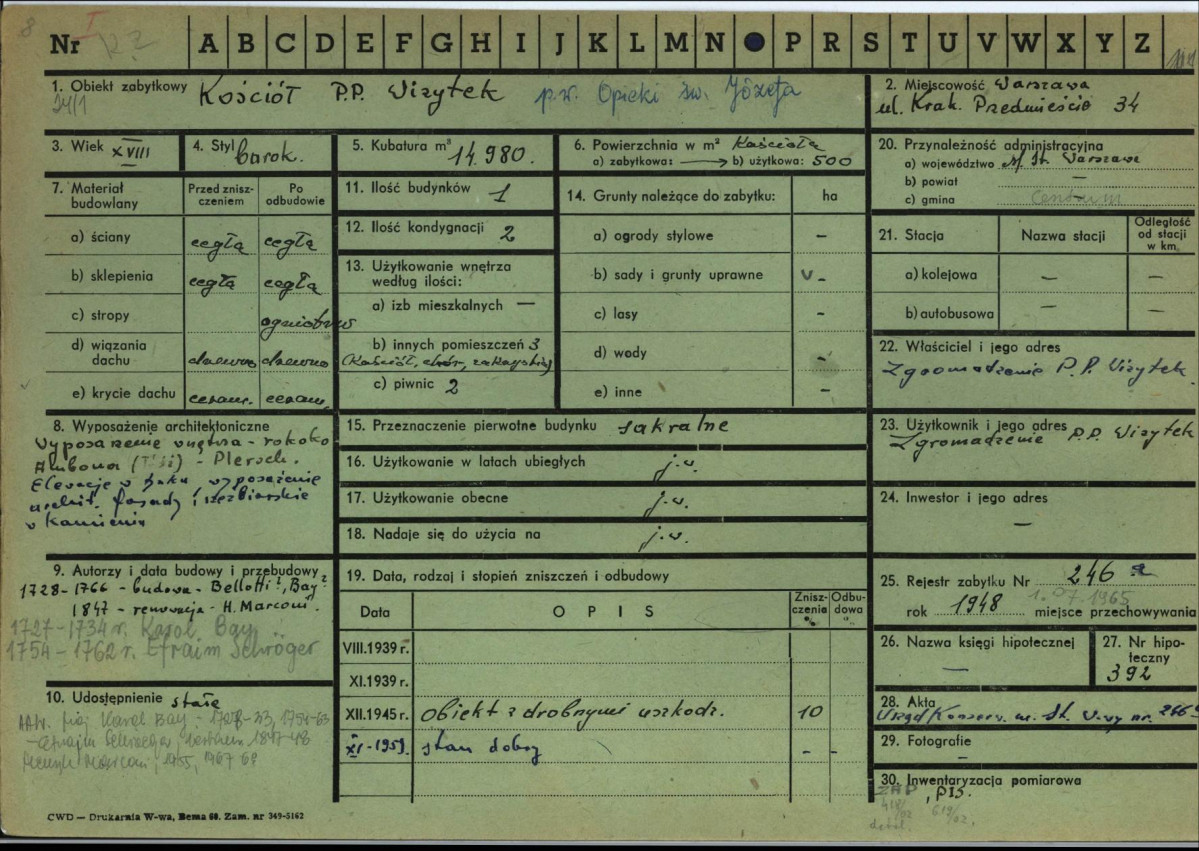 8
Nr I A B C D E F G H I J K L M N O P R S T U V W X Y Z
1. Obiekt zabytkowy Kościół P.P. Wizytek p.w. Opieki św. Józefa
24/1
2. Miejscowość Warszawa
ul. Krak. Przedmieście 34
3. Wiek XVIII
4. Styl barok.
5. Kubatura m³ 14.980.
6. Powierzchnia w m² Kościoła
a) zabytkowa: → b) użytkowa: 500
20. Przynależność administracyjna
a) województwo M. St. Warszawa
b) powiat —
c) gmina Centrum
7. Materiał budowlany
Przed zniszczeniem
Po odbudowie
a) ściany cegła cegła
b) sklepienia cegła cegła
c) stropy
d) wiązania dachu drewno drewno
e) krycie dachu ceram. ceram.
11. Ilość budynków 1
12. Ilość kondygnacji 2
13. Użytkowanie wnętrza
według ilości:
a) izb mieszkalnych —
b) innych pomieszczeń 3
(Kościół, chór, zakrystia)
c) piwnic 2
14. Grunty należące do zabytku: ha
a) ogrody stylowe -
b) sady i grunty uprawne -
c) lasy -
d) wody -
e) inne -
21. Stacja Nazwa stacji Odległość
od stacji
w km.
a) kolejowa — —
b) autobusowa — —
22. Właściciel i jego adres
Zgromadzenie P.P. Wizytek.
8. Wyposażenie architektoniczne
Wyposażenie wnętrza - rokoko
Ambona - Plersch.
Elewacje w , wyposażenie
archit. fasady i rzeźbiarskie
w kamieniu
15. Przeznaczenie pierwotne budynku sakralne
16. Użytkowanie w latach ubiegłych j.w.
17. Użytkowanie obecne j.w.
18. Nadaje się do użycia na j.w.
23. Użytkownik i jego adres P.P. Wizytek
Zgromadzenie
24. Inwestor i jego adres
—
9. Autorzy i data budowy i przebudowy
1728-1766 - budowa - Bellotti?, Bay?
1847 - renowacja - H. Marconi.
1727-1734 r. Karol Bay
1754-1762 r. Efraim Schröger
10. Udostępnienie stałe
19. Data, rodzaj i stopień zniszczeń i odbudowy
Data OPIS Zniszczenia % Odbudowa %
VIII.1939 r.
XI.1939 r.
XII.1945 r. Obiekt z drobnymi uszkodz. 10
XI-1959. stan dobry - -
25. Rejestr zabytku Nr 246
1.07.1965
rok 1948 miejsce przechowywania
26. Nazwa księgi hipotecznej
—
27. Nr hipoteczny
392
28. Akta
Urząd Konserw. m. St. W-wy nr.
29. Fotografie
-
30. Inwentaryzacja pomiarowa
ZAP, PIS.
CWD — Drukarnia W-wa, Bema 68. Zam. nr 349-5162